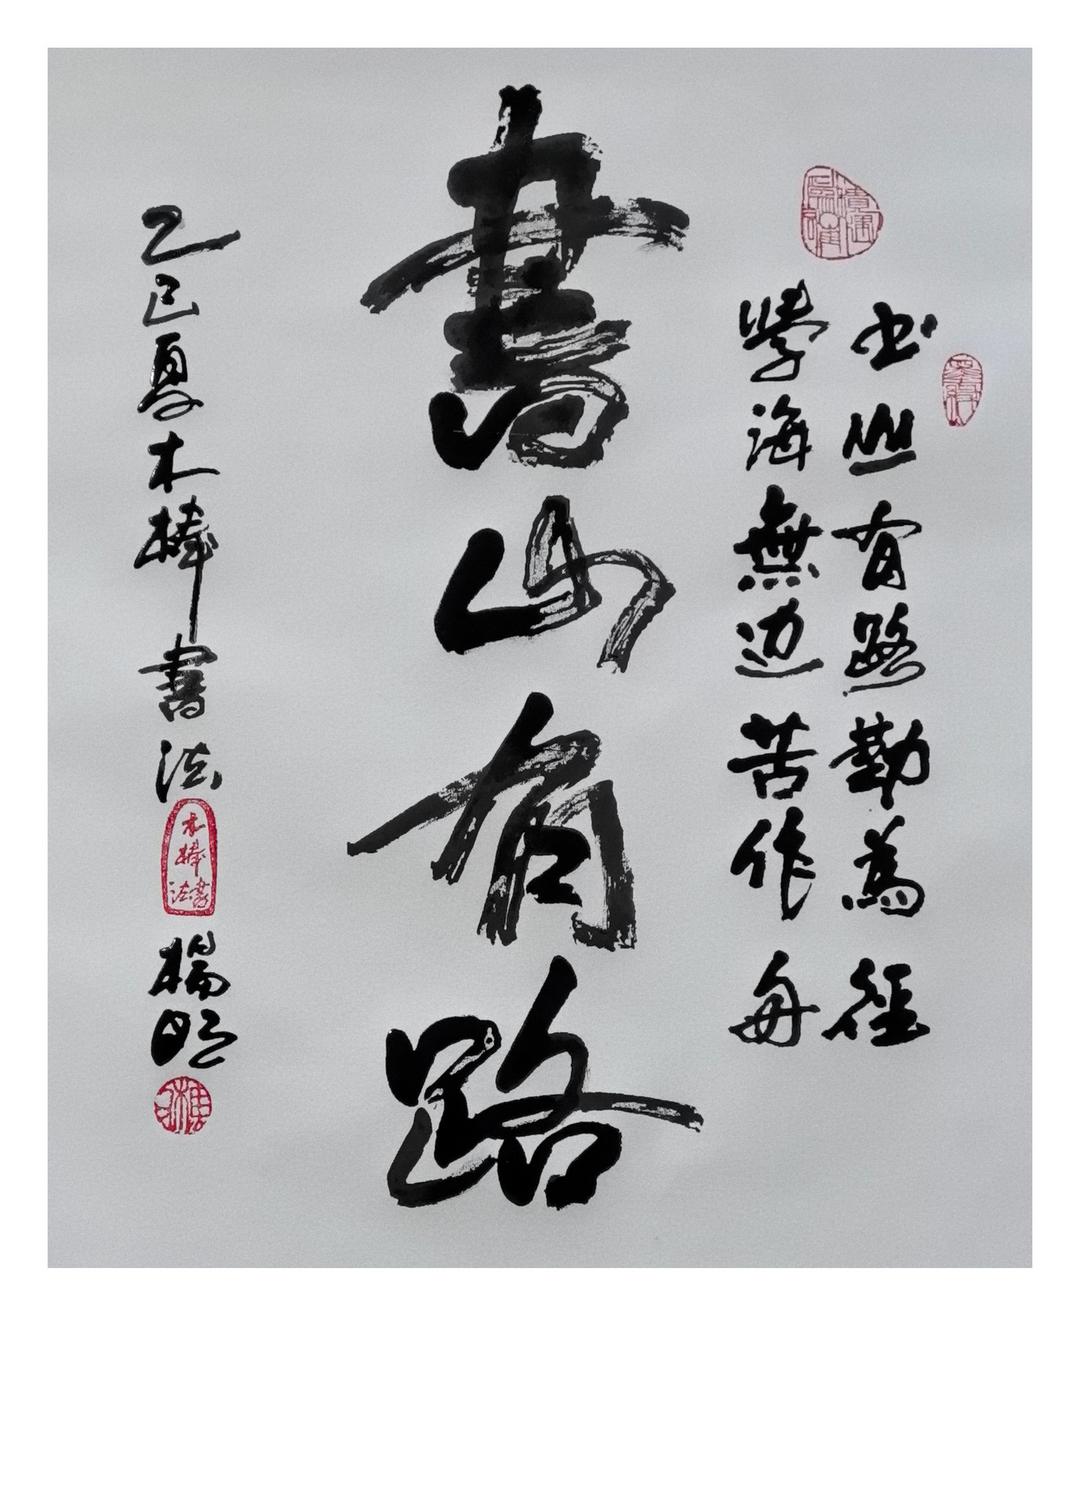 书山有路勤为径
學海無边苦作舟
書山有路
乙巳夏木棒書法
木棒書法
楊明